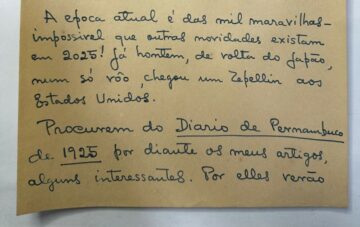 A epoca atual é das mil maravilhas -
impossivel que outras novidades existam
em 2025! Já hontem, de volta do Japão,
num só vôo, chegou um Zepellin aos
Estados Unidos.
Procurem do Diario de Pernambuco
de 1925 por diante os meus artigos,
alguns interessantes. Por elles verão